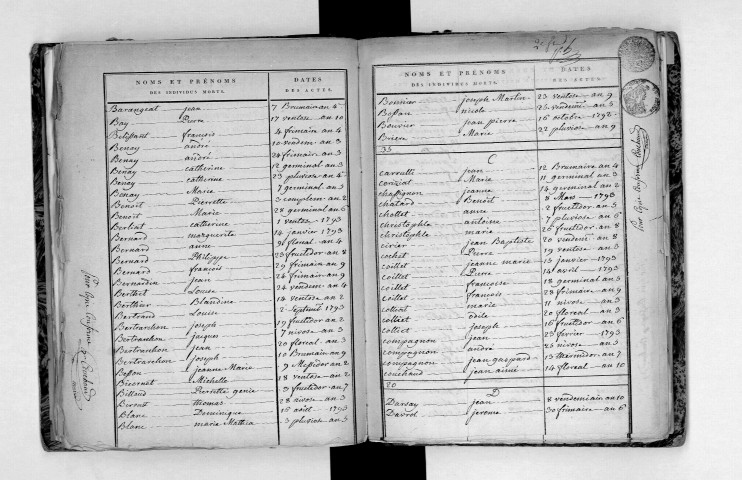 NOMS ET PRÉNOMS DATES
DES INDIVIDUS MORTS. DES ACTES.
Barangeat jean 7 Brumaire an 4
Bay Pierre 17 ventose an 10
françois 4 frimaire an 4
Benay andré 10 vendem an 3
Benay andré 24 frimaire an 3
Benay catherine 12 germinal an 3
Benay catherine 23 pluviose an 4
Benay Marie 7 germinal an 3
Benoit Pierrette 3 complem an 2
Benoit Marie 28 germinal an 6
Berliat catherine 1 ventose 1793
Bernard marguerite 14 janvier 1793
Bernard anne 9 floreal an 4
Bernard Philippe 23 fructidor an 8
Bernard françois 29 frimaire an 9
Bernardin jean 24 frimaire an 9
Berthet Louise 24 vendem an 4
Berthier Blandine 18 ventose an 2
Bertrand Louise 2 septembre 1793
Bertrarchon joseph 19 fructidor an 2
Bertrarchon jacques 7 nivose an 3
Bertrarchon jean 20 floreal an 3
Bertrarchon joseph 10 Brumaire an 9
Besson jeanne Marie 9 Messidor an 2
Michelle 18 ventose an 2
Billoud Pierrette genie 3 fructidor an 7
thomas 28 nivose an 3
Blanc Dominique 15 août 1793
Blanc marie 3 pluviose an 3
NOMS ET PRÉNOMS DATES
DES INDIVIDUS MORTS. DES ACTES.
Bonnier joseph Martin 23 ventose an 9
nicole 25 vendem an 3
Bouvier jean pierre 16 octobre 1792
Marie 22 pluviose an 9
35
C
jean 12 Brumaire an 4
Marie 11 germinal an 3
chassignon jeanne 14 germinal an 2
chatard Benoit 8 Mars 1793
chollet anne 2 fructidor an 3
christophle antoine 7 pluviose an 6
christophle marie 26 fructidor an 8
civier jean Baptiste 20 vendem an 8
cochet Pierre 19 ventose an 3
coillet jeanne marie 13 janvier 1793
coillet Pierre 14 avril 1793
coillet françoise 18 germinal an 3
coillet françois 28 frimaire an 9
marie 11 nivose an 3
odile 20 floreal an 3
joseph 16 fructidor an 6
compagnon jean 23 fevrier 1793
compagnon andré 25 nivose an 3
compagnon jean gaspard 13 thermidor an 7
couchaud jean aimé 14 floreal an 10
20
D
Darsay jean 8 vendemiaire an 10
Davrol jerome 30 frimaire an 6